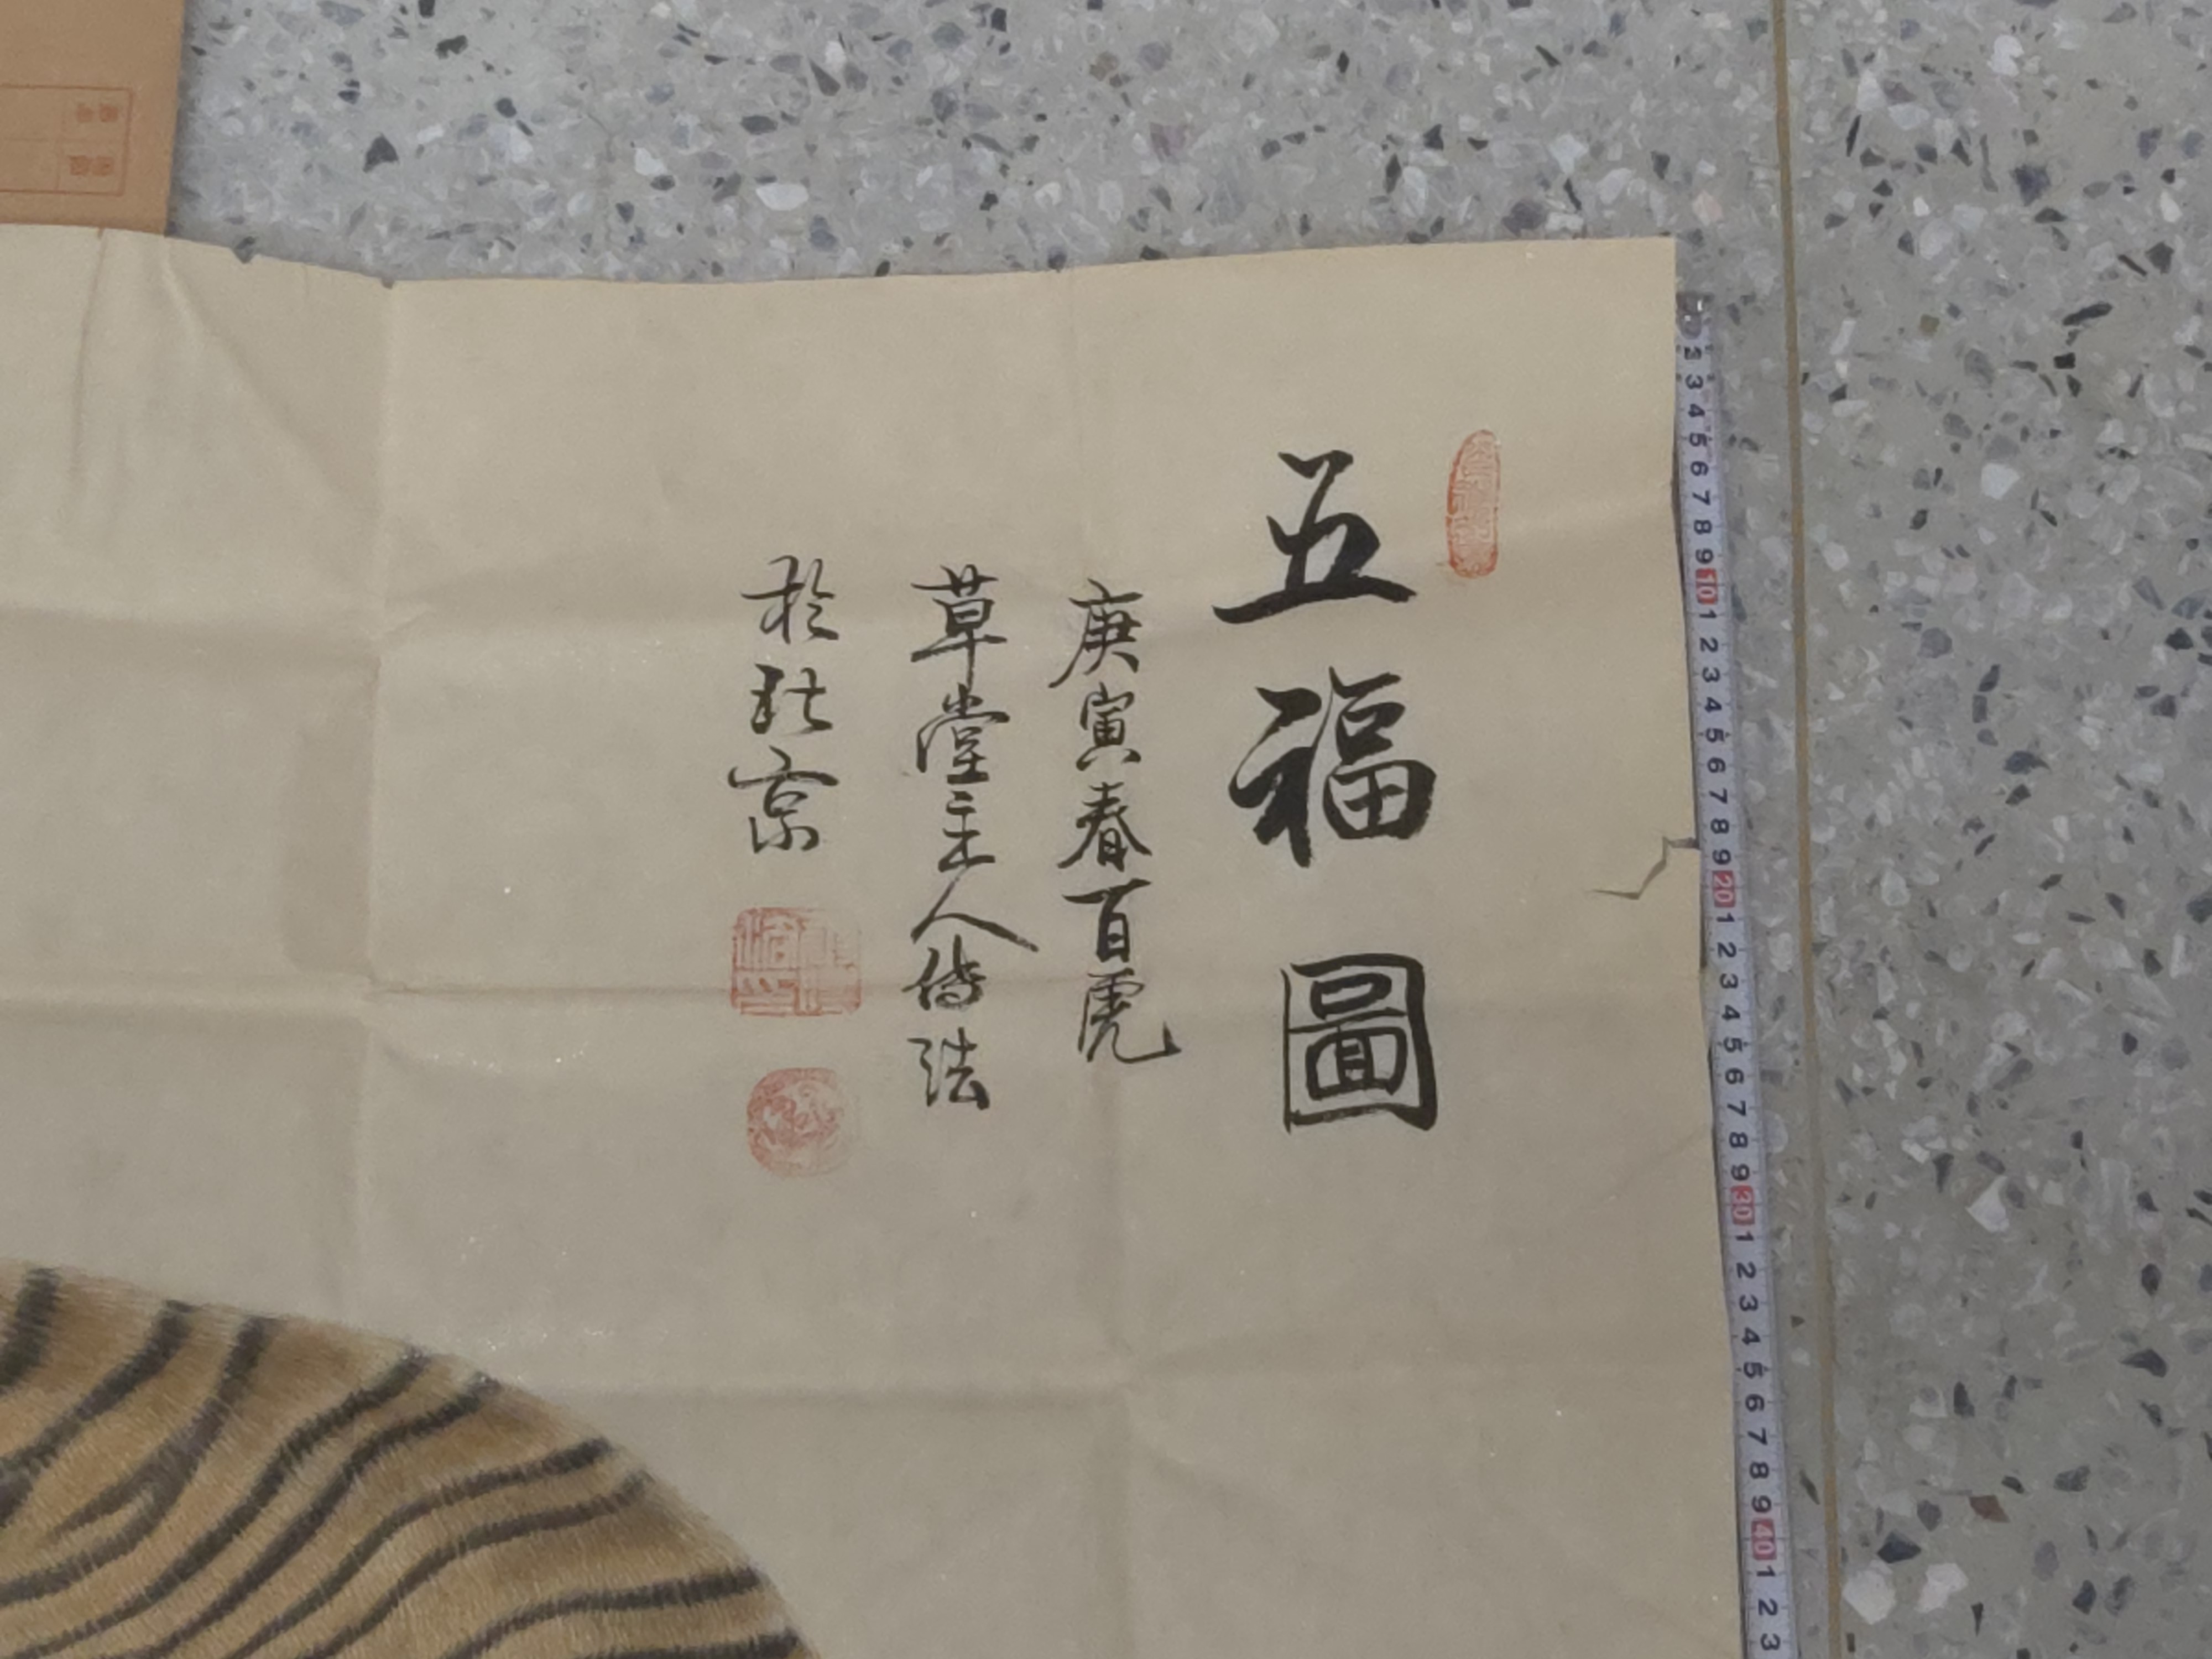 五福圖
庚寅春百虎
草堂主人
於北京
2 3 4 5 6 7 8 9 10 1 2 3 4 5 6 7 8 9 20 1 2 3 4 5 6 7 8 9 30 1 2 3 4 5 6 7 8 9 40 1 2 3